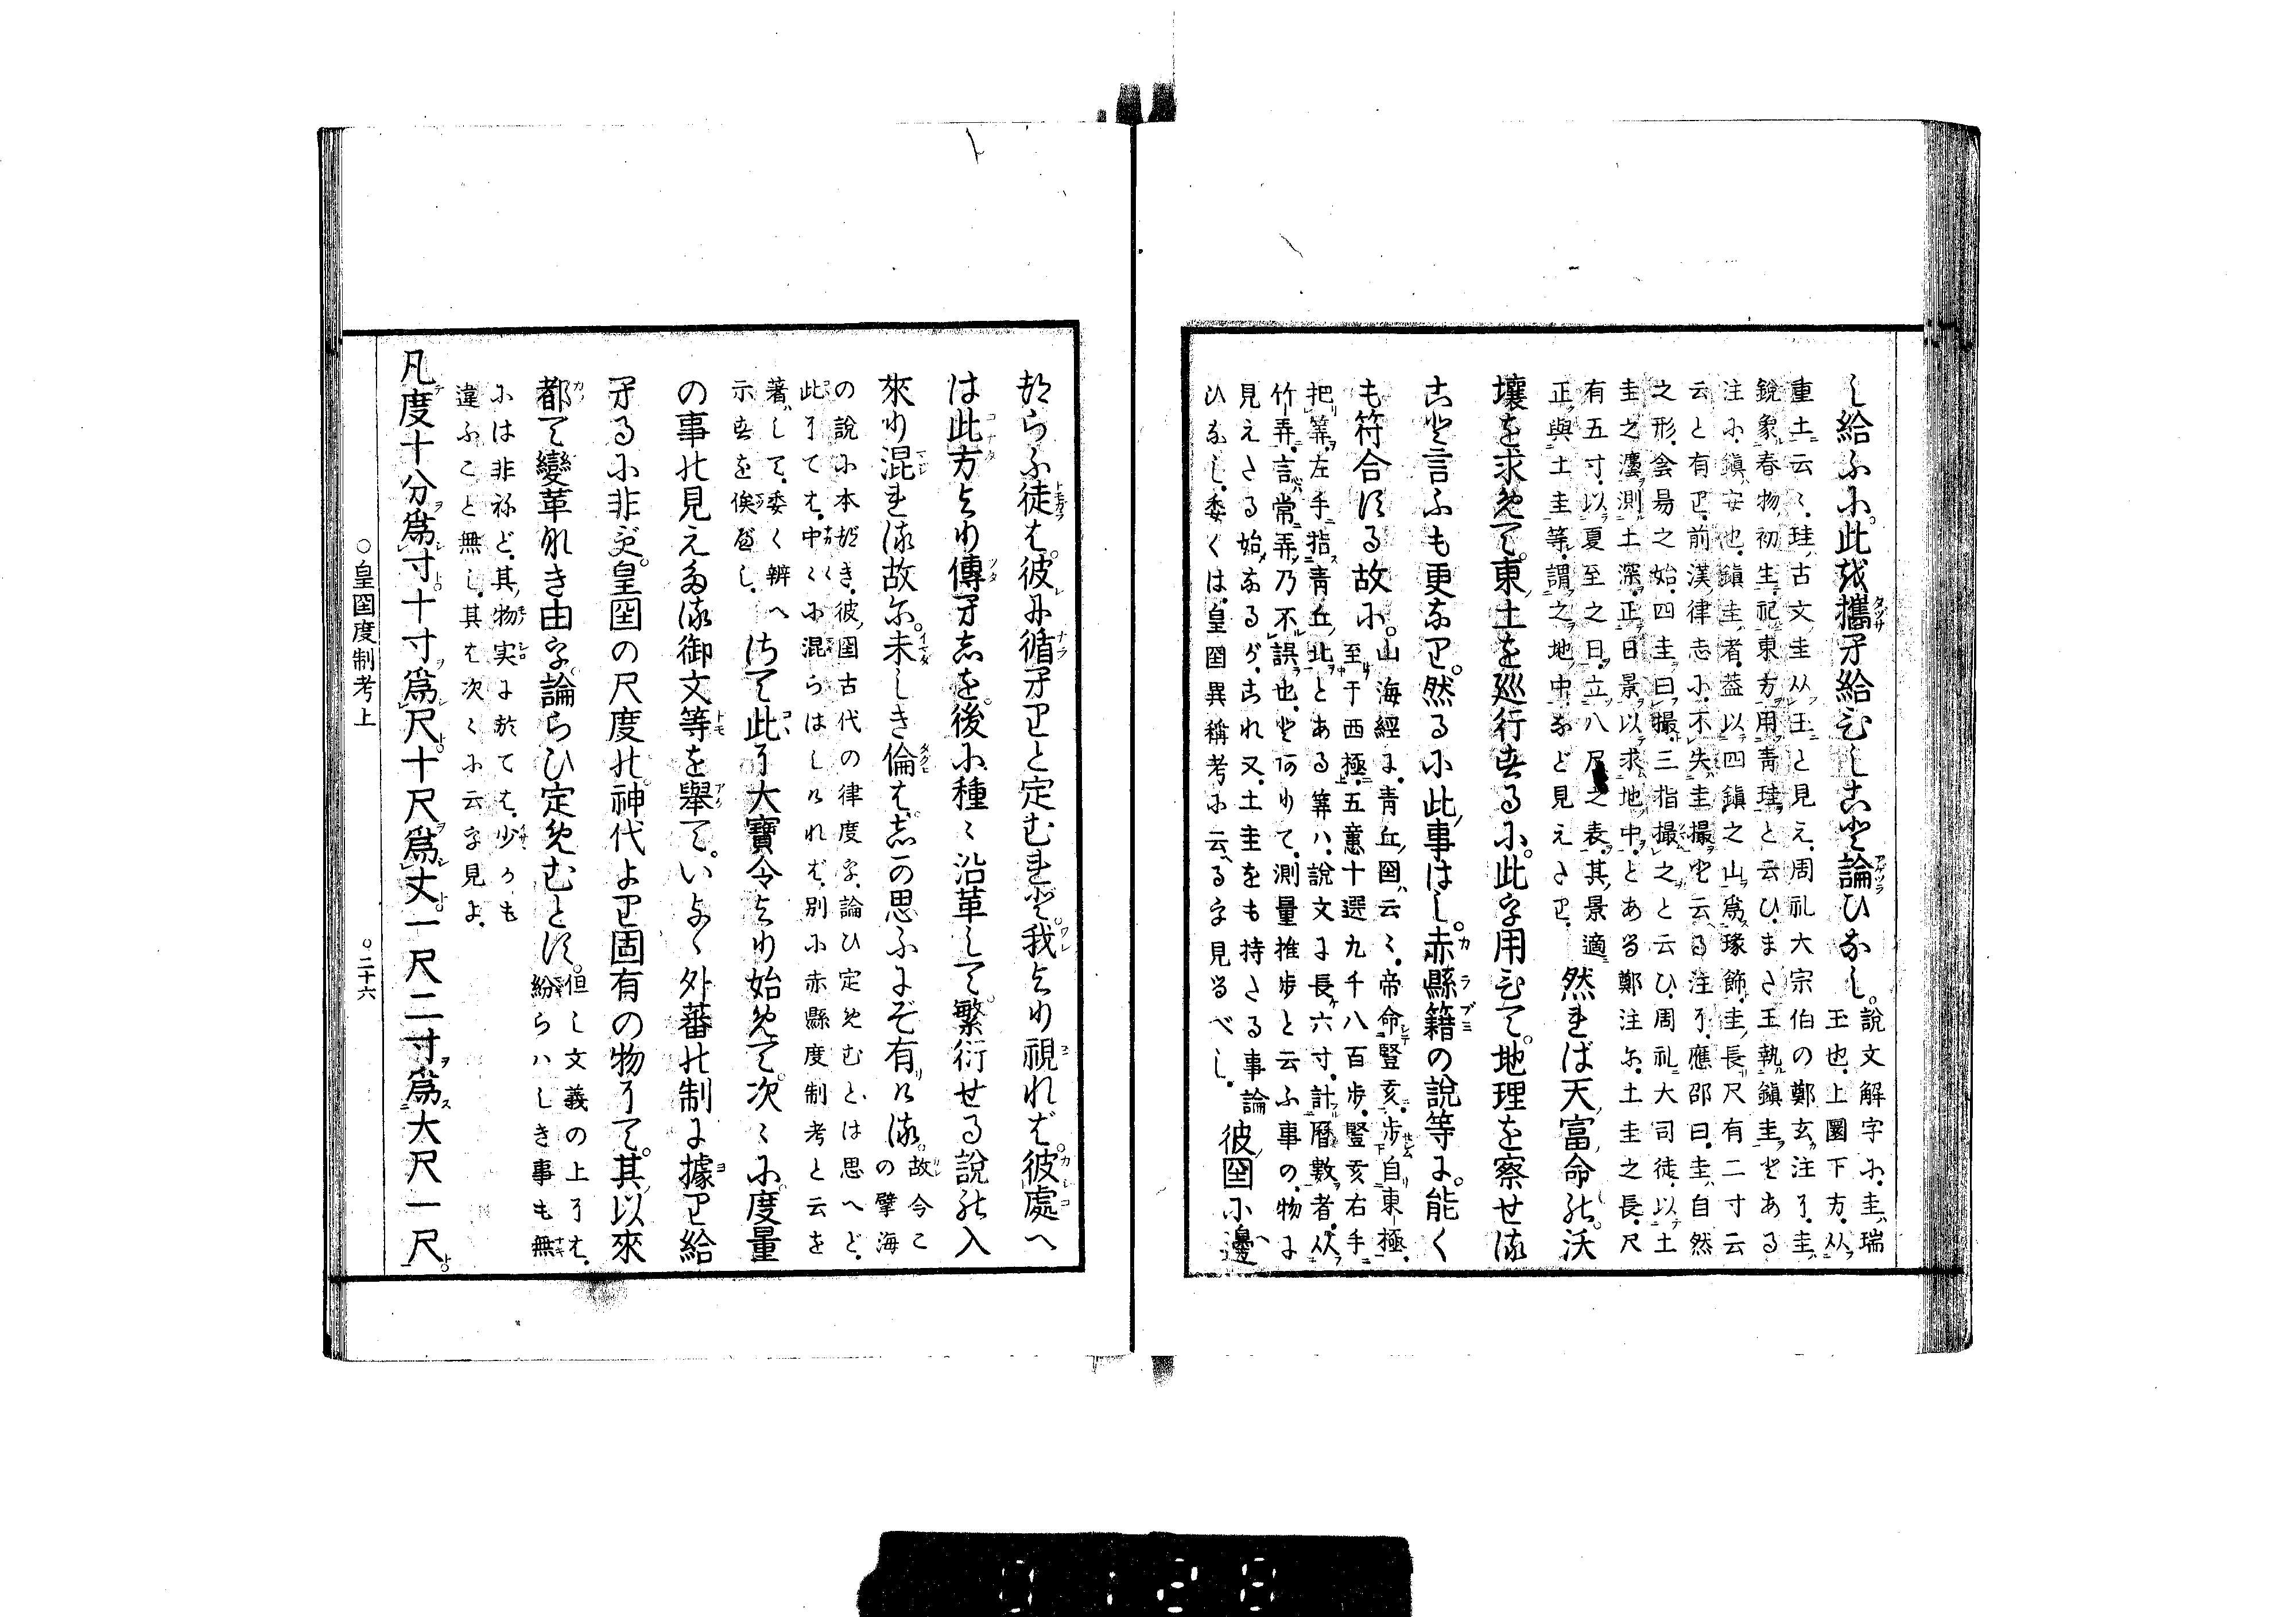 し給ふに。此を攜り給ひしこと論ひなし。說文解字に、圭瑞
玉也、上圜下方、从
重土云々、珪、古文圭从玉と見え、周礼大宗伯の鄭玄注に、圭
銳象春物初生、祀東方用青珪と云ひ、また王執鎭圭とある
注に、鎭、安也、鎭圭者、蓋以四鎭之山爲瑑飾、圭長尺有二寸云
云と有り、前漢律志に、不失圭撮と云る注に、應邵曰、圭、自然
之形、会易之始、四圭曰撮、三指撮之と云ひ、周礼大司徒、以土
圭之灋測土深、正日景、以求地中、とある鄭注に、土圭之長、尺
有五寸、以夏至之日、立八尺之表、其景適
正與土圭等、謂之地中、など見えたり。
然れば天富命の。沃
壤を求めて。東土を巡行せるに。此を用ひて。地理を察せる
こと言ふも更なり。然るに此事はし。赤縣籍の說等に。能く
も符合する故に。山海經に、青丘國云々、帝命豎亥、步自東極、
至于西極、五億十選九千八百步、豎亥右手
把筭、左手指青丘北とある筭ハ、說文に長六寸、計曆數者、从
竹弄、言常弄、乃不誤也、と有りて、測量推步と云ふ事の、物に
見えたる始なるが、これ又、土圭をも持たる事論
ひなし、委くは、皇國異稱考に云るを見るべし、
彼國に邊
都らふ徒は。彼に循りと定むれど。我より視れば。彼處へ
は此方より傳りしを。後に種々沿革して。繁衍せる說の入
來り混れる故に。未しき倫は。しか思ふにぞ有ける。故今こ
の擘海
の說に本づき、彼國古代の律度を、論ひ定めむとは思へど、
此にては、中々に混らはしければ、別に赤縣度制考と云を
著して、委く辨へ
示せを俟べし、
さて此に大寶令より始めて。次々に。度量
の事の見えたる御文等を舉て。いよゝ外蕃の制に據り給
へるに非ず。皇國の尺度の。神代より固有の物にて。其以來
都て變革れき由を。論らひ定めむとす。但し文義の上にては、
紛らハしき事も無
には非ねど、其物実に於ては、少かも
違ふこと無し、其は次々に云を見よ、
凡度十分爲寸十寸爲尺十尺爲丈一尺二寸爲大尺一尺
○皇國度制考上
○二十六